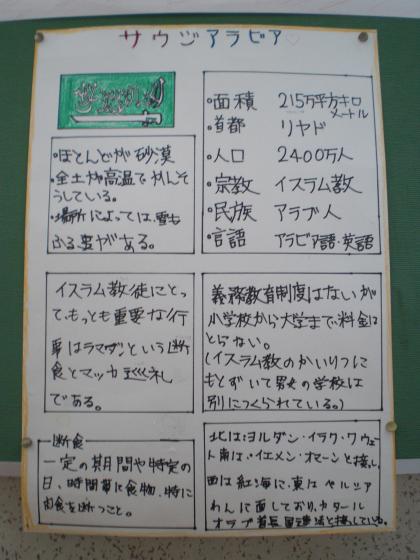 サウジアラビア♡
・面積 215万平方キロメートル
・首都 リヤド
・人口 2400万人
・宗教 イスラム教
・民族 アラブ人
・言語 アラビア語・英語
・ほとんどが砂漠
・全土が高温でかんそ
うしている。
・場所によっては、雪も
ふる事がある。
イスラム教徒にとっ
て、もっとも重要な行
事はラマダンという断
食とマッカ巡礼
である。
義務教育制度はないが
小学校から大学まで、料金は
とらない。
(イスラム教のかいりつに
もとずいて男女の学校は
別につくられている。)
断食
一定の期間や特定の
日、時間帯に食物、特に
肉食を断つこと。
北は・ヨルダン・イラク・クウェー
ト南は・イエメン・オマーンと接し、
西は紅海に、東はペルシア
わんに面しており、カタール
首長国連邦と接している。